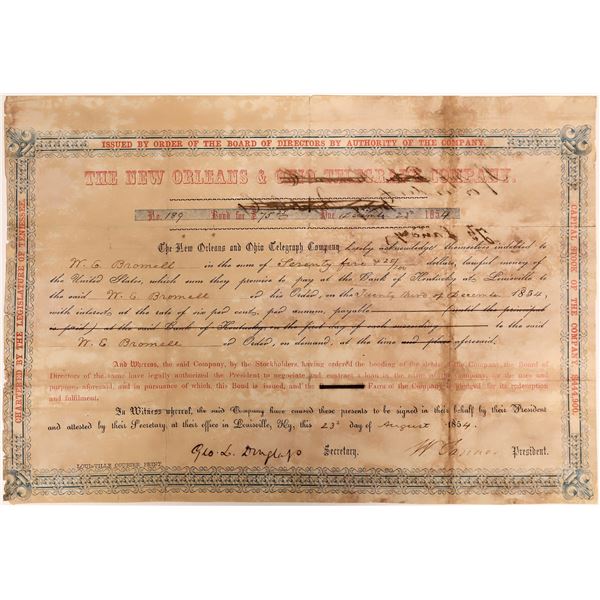 ISSUED BY ORDER OF THE BOARD OF DIRECTORS BY AUTHORITY OF THE COMPANY.
THE NEW ORLEANS & OHIO TELEGRAPH COMPANY.
No. 189 Bond for $75 Due December 23 1854
The New Orleans and Ohio Telegraph Company hereby acknowledge themselves indebted to
W. E. Bromell in the sum of Seventy five & 20/100 dollars, lawful money of
the United States, which sum they promise to pay at the Bank of Kentucky at Louisville to
the said W. E. Bromell or his Order, on the Twenty third of December 1854,
with interest at the rate of six per cent. per annum, payable (until the principal
is paid) at the said Bank of Kentucky on the first day of each succeeding to the said
W. E. Bromell or Order, on demand, at the time and place aforesaid.
And Whereas, the said Company, by the Stockholders having ordered the bonding of the Company, the Board of
Directors of the same have authorized the President to negotiate and contract a loan in the name of the company, for the uses and
purposes aforesaid, and in pursuance of which, this Bond is issued, and the of the Company is pledged for its redemption
and fulfilment.
In Witness whereof, the said Company have caused these presents to be signed in their behalf by their President
and attested by their Secretary, at their office in Louisville, Ky, this 23d day of August 1854.
Geo. L. Douglass Secretary. President.
LOUISVILLE COURIER PRINT.
CHARTERED BY THE LEGISLATURE OF TENNESSEE.
CAPITAL STOCK OF THE COMPANY